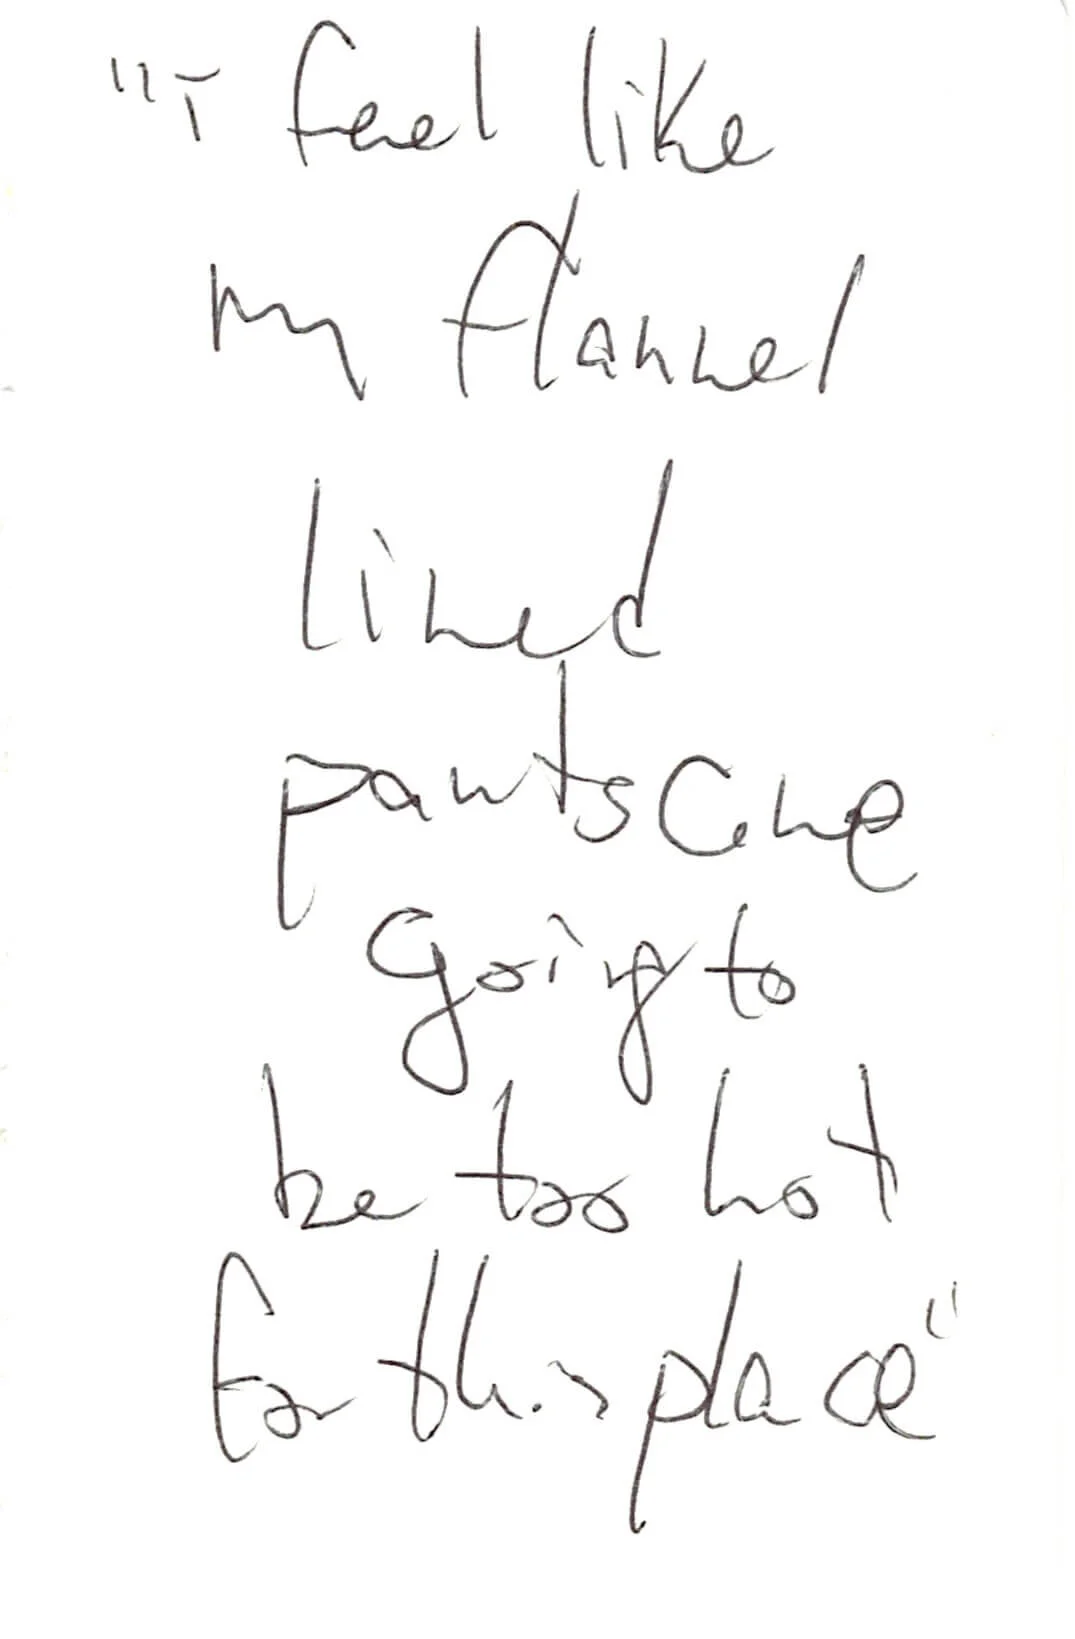 "I feel like
my flannel
lined
pants are
going to
be too hot
for this place"